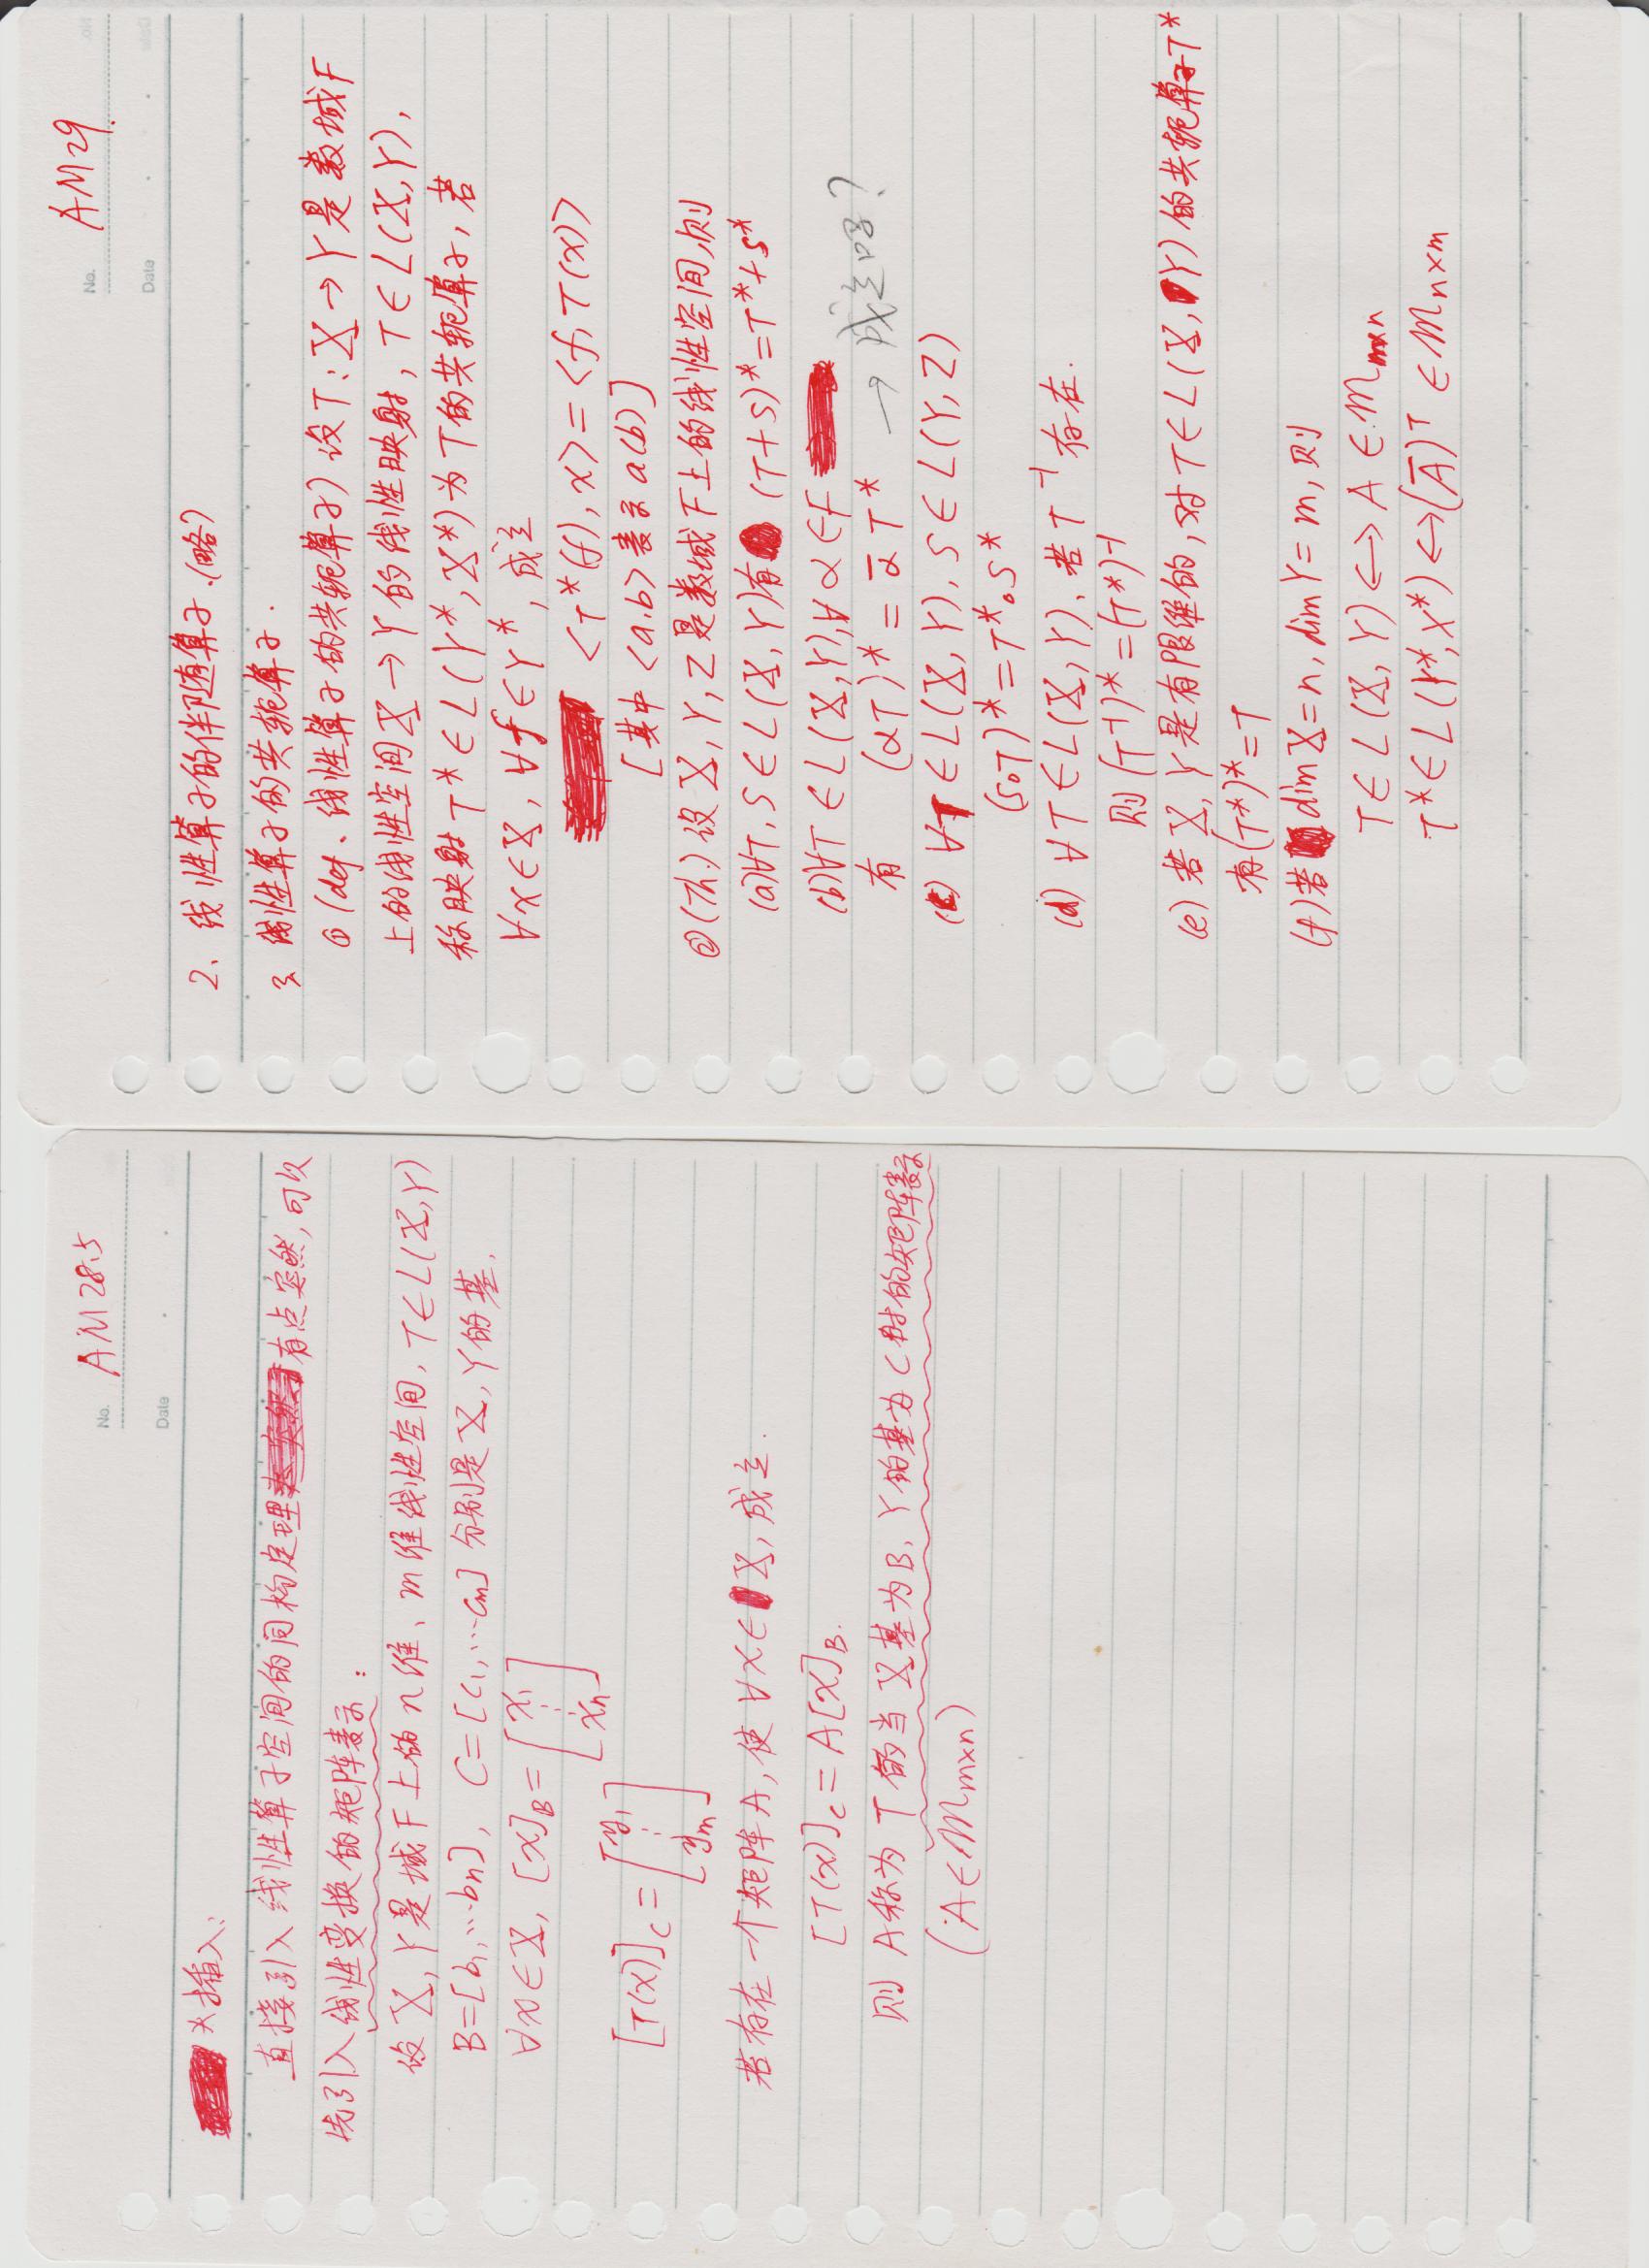 No. AM28.5
Date
*插入:
直接引入线性算子空间的同构定理有点突然,可以
先引入线性变换的矩阵表示:
设X,Y是域F上的n维、m维线性空间,T∈L(X,Y)
B=[b₁,…bn], C=[c₁,…cm]分别是X,Y的基.
∀x∈X, [x]_B=[x₁ ⋮ xn]
[T(x)]_C=[y₁ ⋮ ym]
若存在一个矩阵A,使∀x∈X,成立.
[T(x)]_C=A[x]_B.
则A称为T的当X基为B,Y的基为C时的矩阵表示
(A∈M_{m×n})
No. AM29.
Date
2、线性算子的伴随算子.(略)
3、线性算子的共轭算子.
①(def、线性算子的共轭算子)设T:X→Y是数域F
上的线性空间X→Y的线性映射,T∈L(X,Y),
称映射T*∈L(Y*,X*)为T的共轭算子,若
∀x∈X,∀f∈Y*,成立
<T*(f),x>=<f,T(x)>
[其中<a,b>表示a(b)]
②(Th.)设X,Y,Z是数域F上的线性空间,则
(a)∀T,S∈L(X,Y)有 (T+S)*=T*+S*
(b)∀T∈L(X,Y),∀α∈F
有 (αT)*=ᾱT* → 成立吗?
(c) ∀T∈L(X,Y),S∈L(Y,Z)
(S∘T)*=T*∘S*
(d) ∀T∈L(X,Y)、若T⁻¹存在.
则(T⁻¹)*=(T*)⁻¹
(e) 若X,Y是有限维的,对T∈L(X,Y)的共轭算子T*
有(T*)*=T
(f)若dimX=n,dimY=m,则
T∈L(X,Y)↔A∈M_{m×n}
T*∈L(Y*,X*)↔(Ā)ᵀ∈M_{n×m}